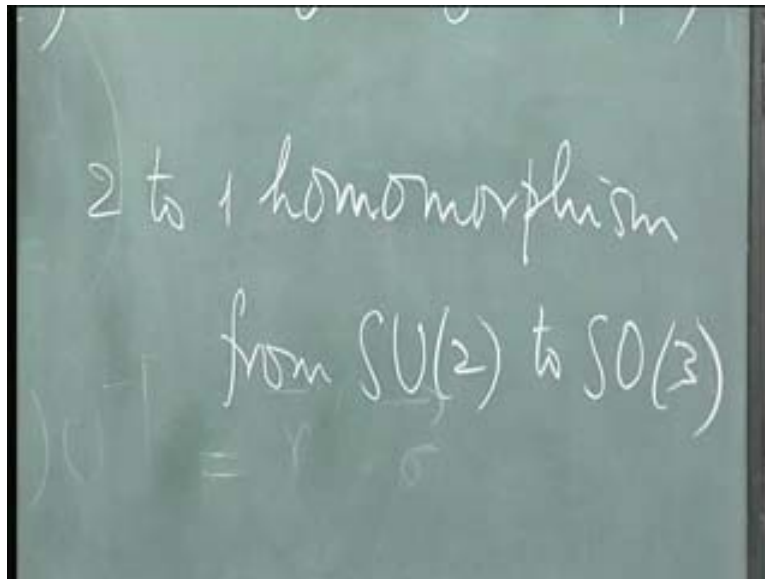 2 to 1 homomorphism
from SU(2) to SO(3)